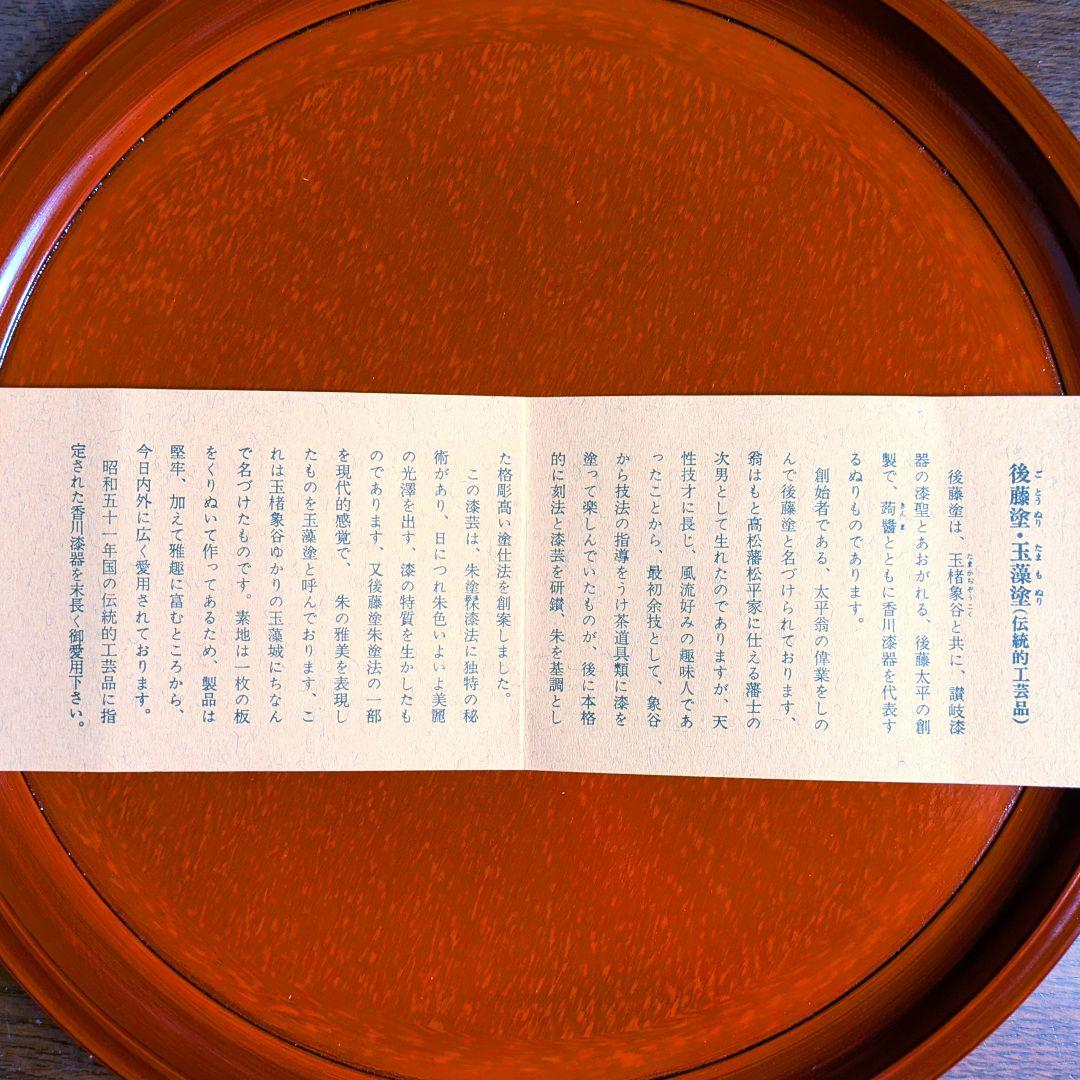 後藤塗・玉藻塗(伝統的工芸品)
後藤塗は、玉楮象谷と共に、讃岐漆
器の漆聖とあおがれる、後藤太平の創
製で、蒟醬とともに香川漆器を代表す
るぬりものであります。
創始者である、太平翁の偉業をしの
んで後藤塗と名づけられております、
翁はもと高松藩松平家に仕える藩士の
次男として生れたのでありますが、天
性技才に長じ、風流好みの趣味人であ
ったことから、最初余技として、象谷
から技法の指導をうけ茶道具類に漆を
塗って楽しんでいたものが、後に本格
的に刻法と漆芸を研鑚、朱を基調とし
た格彫高い塗仕法を創案しました。
この漆芸は、朱塗髹漆法に独特の秘
術があり、日につれ朱色いよいよ美麗
の光澤を出す、漆の特質を生かしたも
のであります、又後藤塗朱塗法の一部
を現代的感覚で、朱の雅美を表現し
たものを玉藻塗と呼んでおります、こ
れは玉楮象谷ゆかりの玉藻城にちなん
で名づけたものです。素地は一枚の板
をくりぬいて作ってあるため、製品は
堅牢、加えて雅趣に富むところから、
今日内外に広く愛用されております。
昭和五十一年国の伝統的工芸品に指
定された香川漆器を末長く御愛用下さい。